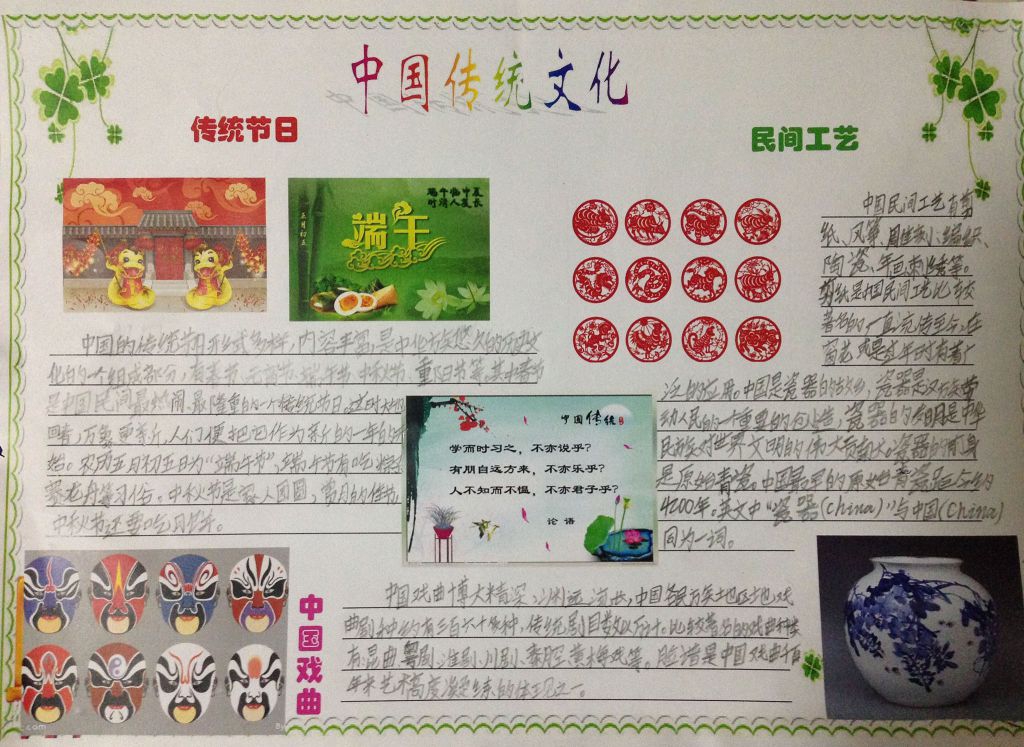 中国传统文化
传统节日
民间工艺
端午临中夏
时清人复长
五月初五
端午
中国民间工艺有剪
纸、风筝、
陶瓷、年画、刺绣等。
剪纸是中国民间工艺比较
著名的一直流传至今,在
窗花或是过年时有着广
泛的应用。中国是瓷器的故乡,瓷器是汉族劳
动人民的一个重要的创造,瓷器的发明是中华
民族对世界文明的伟大贡献。瓷器的前身
是原始青瓷。中国最早的原始青瓷距今约
4200年。英文中“瓷器(china)”与中国(China)
同为一词。
中国的传统节日形式多样,内涵丰富,是中华民族悠久的历史文
化的一个组成部分,有春节、元宵节、端午节、中秋节、重阳节等。其中春节
是中国民间最热闹、最隆重的一个传统节日。这时大地
回春,万象更新,人们便把它作为新的一年的开
始。农历五月初五日为“端午节”,端午节有吃粽子
赛龙舟等习俗。中秋节是家人团圆、赏月的佳节,
中秋节还要吃月饼。
中国传统
学而时习之,不亦说乎?
有朋自远方来,不亦乐乎?
人不知而不愠,不亦君子乎?
论语
中国戏曲
中国戏曲博大精深,源远流长,中国各民族地区地戏
曲剧种约有三百六十多种,传统剧目数以万计。比较著名的戏曲种类
有:昆曲、粤剧、淮剧、川剧、秦腔、黄梅戏等。脸谱是中国戏曲千百
年来艺术高度凝练的体现之一。